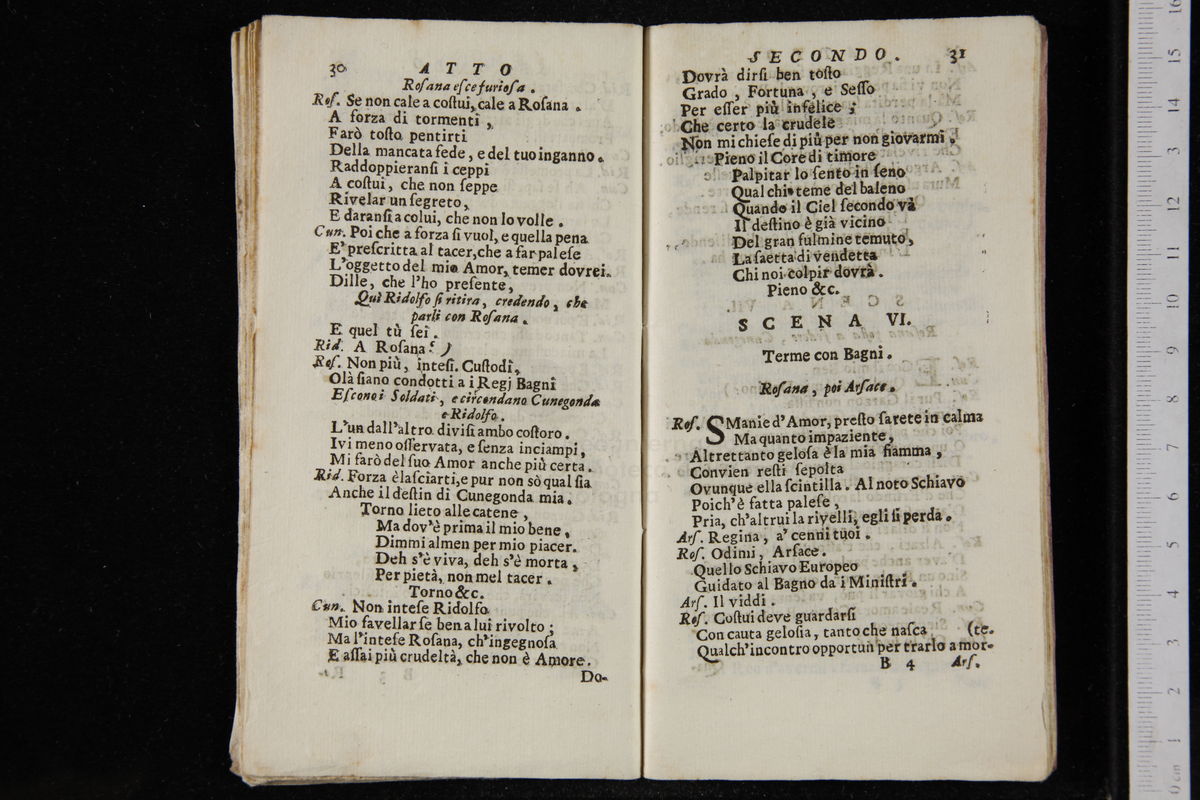 30 ATTO
Rosana esce furiosa.
Ros. Se non cale a costui, cale a Rosana.
A forza di tormenti,
Farò tosto pentirti
Della mancata fede, e del tuo inganno.
Raddoppieransi i ceppi
A costui, che non seppe
Rivelar un segreto,
E daransi a colui, che non lo volle.
Cun. Poi che a forza si vuol, e quella pena
E' prescritta al tacer, che a far palese
L'oggetto del mio Amor, temer dovrei.
Dille, che l'ho presente,
Quì Ridolfo si ritira, credendo, che
parli con Rosana.
E quel tù sei.
Rid. A Rosana? )
Ros. Non più, intesi. Custodi,
Olà siano condotti a i Regj Bagni
Escono i Soldati, e circondano Cunegonda
e Ridolfo.
L'un dall'altro divisi ambo costoro.
Ivi meno osservata, e senza inciampi,
Mi farò del suo Amor anche più certa.
Rid. Forza è lasciarti, e pur non sò qual sia
Anche il destin di Cunegonda mia.
Torno lieto alle catene,
Ma dov'è prima il mio bene,
Dimmi almen per mio piacer.
Deh s'è viva, deh s'è morta,
Per pietà, non mel tacer.
Torno &c.
Cun. Non intese Ridolfo
Mio favellar se ben a lui rivolto;
Ma l'intese Rosana, ch'ingegnosa
E assai più crudeltà, che non è Amore.
Do-
SECONDO. 31
Dovrà dirsi ben tosto
Grado, Fortuna, e Sesso
Per esser più infelice;
Che certo la crudele
Non mi chiese di più per non giovarmi.
Pieno il Core di timore
Palpitar lo sento in seno
Qual chi teme del baleno
Quando il Ciel secondo và
Il destino è già vicino
Del gran fulmine temuto,
La saetta di vendetta
Chi noi colpir dovrà.
Pieno &c.
SCENA VI.
Terme con Bagni.
Rosana, poi Arsace.
Ros. SManie d'Amor, presto sarete in calma
Ma quanto impaziente,
Altrettanto gelosa è la mia fiamma,
Convien resti sepolta
Ovunque ella scintilla. Al noto Schiavo
Poich'è fatta palese,
Pria, ch'altrui la rivelli, egli si perda.
Ars. Regina, a' cenni tuoi.
Ros. Odimi, Arsace.
Quello Schiavo Europeo
Guidato al Bagno da i Ministri.
Ars. Il viddi.
Ros. Costui deve guardarsi
Con cauta gelosia, tanto che nasca (te.
Qualch'incontro opportun per trarlo a mor-
B 4 Ars.